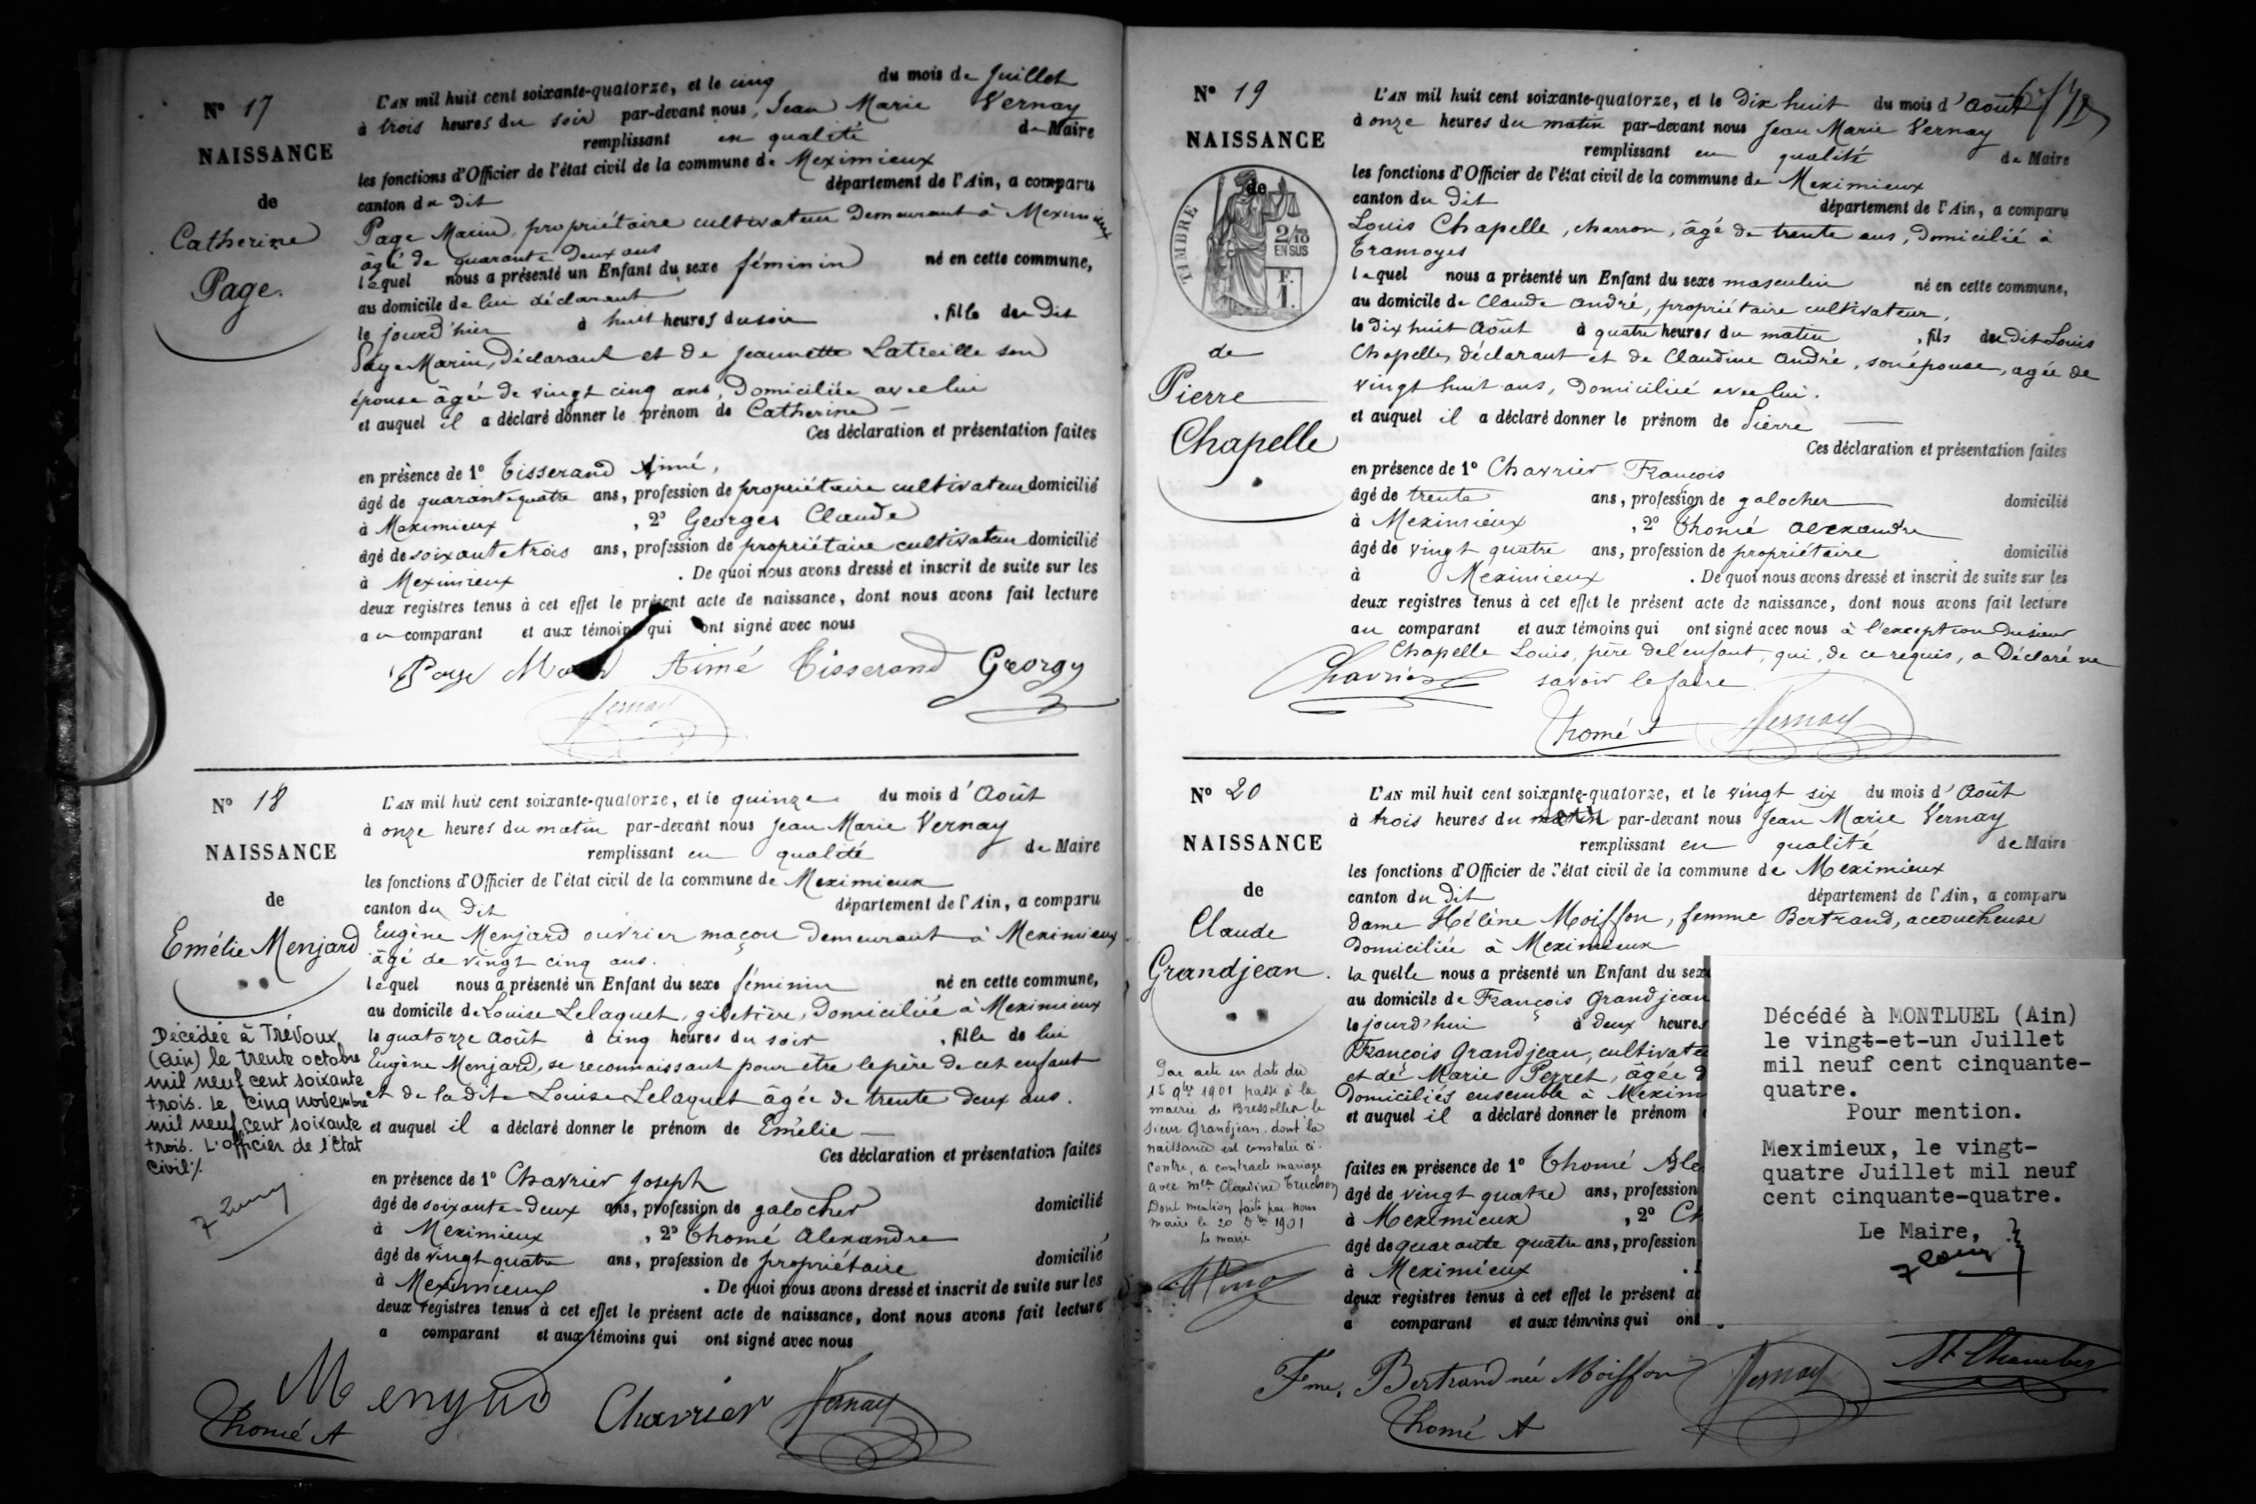 N° 17
NAISSANCE
de
Catherine
Page.
L'AN mil huit cent soixante-quatorze, et le cinq du mois de Juillet
à trois heures du soir par-devant nous, Jean Marie Vernay
remplissant en qualité de Maire
les fonctions d'Officier de l'état civil de la commune de Meximieux
canton du dit département de l'Ain, a comparu
Page Marin, propriétaire cultivateur demeurant à Meximieux
âgé de quarante deux ans
lequel nous a présenté un Enfant du sexe féminin né en cette commune,
au domicile de lui déclarant
le jourd'hier à huit heures du soir , fille du dit
Page Marin, déclarant et de Jeannette Latreille son
épouse âgée de vingt cinq ans, domiciliée avec lui
et auquel il a déclaré donner le prénom de Catherine —
Ces déclaration et présentation faites
en présence de 1° Tisserand Aimé,
âgé de quarante quatre ans, profession de propriétaire cultivateur domicilié
à Meximieux , 2° Georges Claude
âgé de soixante trois ans, profession de propriétaire cultivateur domicilié
à Meximieux . De quoi nous avons dressé et inscrit de suite sur les
deux registres tenus à cet effet le présent acte de naissance, dont nous avons fait lecture
au comparant et aux témoins qui ont signé avec nous
Page Marin Aimé Tisserand Georgy
Vernay
N° 18
NAISSANCE
de
Emélie Menjard
Décédée à Trévoux
(Ain) le trente octobre
mil neuf cent soixante
trois. Le cinq novembre
mil neuf cent soixante
trois. L'officier de l'Etat
Civil ./.
L'AN mil huit cent soixante-quatorze, et le quinze du mois d'Août
à onze heures du matin par-devant nous Jean Marie Vernay
remplissant en qualité de Maire
les fonctions d'Officier de l'état civil de la commune de Meximieux
canton du dit département de l'Ain, a comparu
Eugène Menjard ouvrier maçon demeurant à Meximieux
âgé de vingt cinq ans.
lequel nous a présenté un Enfant du sexe féminin né en cette commune,
au domicile de Louise Lelaquet, giletière, domiciliée à Meximieux
le quatorze Août à cinq heures du soir , fille de lui
Eugène Menjard, se reconnaissant pour être le père de cet enfant
et de la dite Louise Lelaquet âgée de trente deux ans.
et auquel il a déclaré donner le prénom de Emélie —
Ces déclaration et présentation faites
en présence de 1° Chavrier Joseph
âgé de soixante-deux ans, profession de galocher domicilié
à Meximieux , 2° Thomé Alexandre
âgé de vingt quatre ans, profession de propriétaire domicilié
à Meximieux . De quoi nous avons dressé et inscrit de suite sur les
deux registres tenus à cet effet le présent acte de naissance, dont nous avons fait lecture
a comparant et aux témoins qui ont signé avec nous
Menjard Chavrier Vernay
Thomé A
N° 19
NAISSANCE
de
TIMBRE
2/10
EN SUS
F.
1.
de
Pierre
Chapelle
L'AN mil huit cent soixante-quatorze, et le dix huit du mois d'Août
à onze heures du matin par-devant nous Jean Marie Vernay
remplissant en qualité de Maire
les fonctions d'Officier de l'état civil de la commune de Meximieux
canton du dit département de l'Ain, a comparu
Louis Chapelle, charron, âgé de trente ans, domicilié à
Tramoyes
lequel nous a présenté un Enfant du sexe masculin né en cette commune,
au domicile de Claude André, propriétaire cultivateur,
le dix huit Août à quatre heures du matin , fils du dit Louis
Chapelle, déclarant et de Claudine André, son épouse, agée de
vingt huit ans, domiciliée avec lui.
et auquel il a déclaré donner le prénom de Pierre —
Ces déclaration et présentation faites
en présence de 1° Chavrier François
âgé de trente ans, profession de galocher domicilié
à Meximieux , 2° Thomé Alexandre
âgé de vingt quatre ans, profession de propriétaire domicilié
à Meximieux . De quoi nous avons dressé et inscrit de suite sur les
deux registres tenus à cet effet le présent acte de naissance, dont nous avons fait lecture
au comparant et aux témoins qui ont signé avec nous à l'exception du sieur
Chapelle Louis, père de l'enfant, qui, de ce requis, a déclaré ne
savoir le faire
Chavrier
Thomé A Vernay
N° 20
NAISSANCE
de
Claude
Grandjean.
Par acte en date du
15 9bre 1901 passé à la
mairie de Bressolles le
sieur Grandjean, dont la
naissance est constatée ci-
contre, a contracté mariage
avec Mlle Claudine Truchon
Dont mention faite par nous
maire le 20 1901
Le maire
L'AN mil huit cent soixante-quatorze, et le vingt six du mois d'Août
à trois heures du par-devant nous Jean Marie Vernay
remplissant en qualité de Maire
les fonctions d'Officier de l'état civil de la commune de Meximieux
canton du dit département de l'Ain, a comparu
dame Hélène Moiffon, femme Bertrand, accoucheuse
domiciliée à Meximieux
la quelle nous a présenté un Enfant du sex
au domicile de François Grandjean
le jourd'hui à deux heures
François Grandjean, cultivate
et de Marie Perret, agée d
domiciliés ensemble à Mexim
et auquel il a déclaré donner le prénom
faites en présence de 1° Thomé Ale
âgé de vingt quatre ans, profession
à Meximieux , 2° Ch
âgé de quarante quatre ans, profession
à Meximieux .
deux registres tenus à cet effet le présent ac
a comparant et aux témoins qui ont
Fme. Bertrand née Moiffon Vernay
Thomé A
Décédé à MONTLUEL (Ain)
le vingt-et-un Juillet
mil neuf cent cinquante-
quatre.
Pour mention.
Meximieux, le vingt-
quatre Juillet mil neuf
cent cinquante-quatre.
Le Maire,